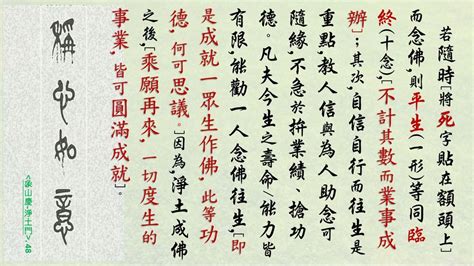 若隨時「將死字貼在額頭上」
而念佛,則平生(一形)等同臨
終(十念),「不計其數而業事成
辦」;其次,自信自行而往生是
重點,教人信與為人助念可
隨緣,不急於拚業績、搶功
德。凡夫今生之壽命、能力皆
有限,能勸一人念佛往生,「即
是成就一眾生作佛,此等功
德,何可思議。」因為,淨土成佛
之後,「乘願再來,一切度生的
事業,皆可圓滿成就」。
稱心如意
〈象山慶-淨土門〉-48